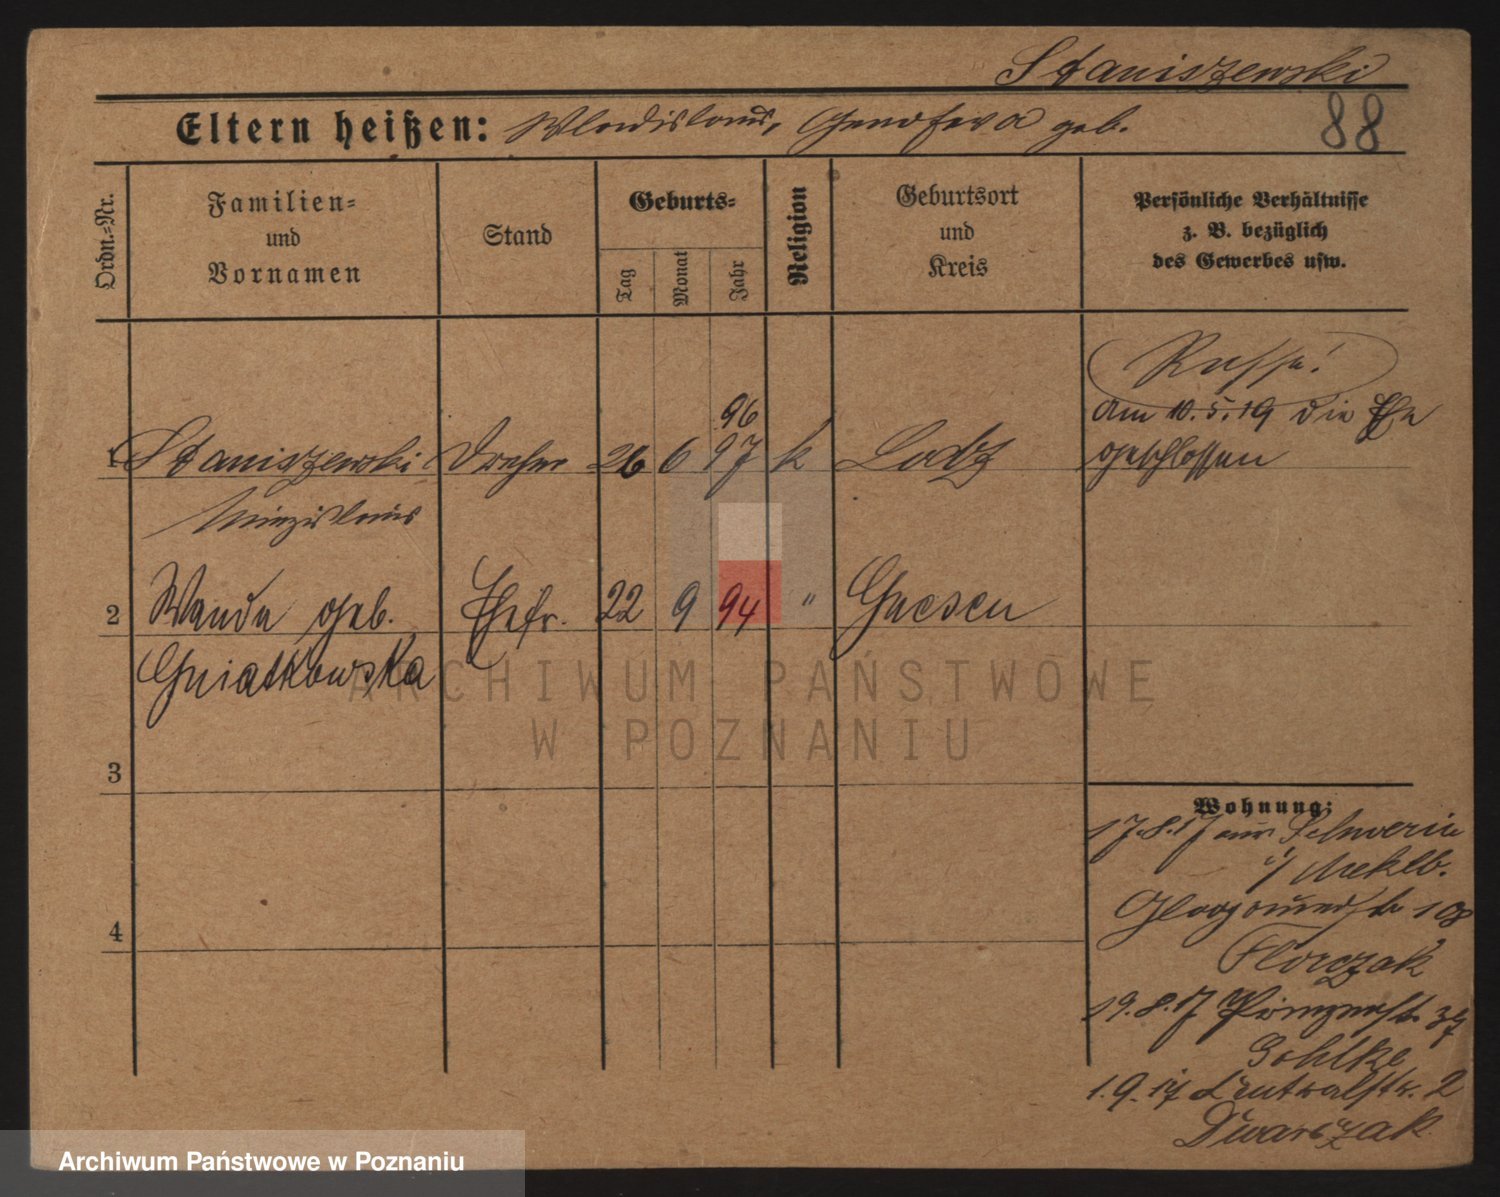 Staniszewski
88
Eltern heißen: Wladislaus, Genofeva geb.
Ordn.-Nr.
Familien- und Vornamen
Stand
Geburts-
Tag
Monat
Jahr
Religion
Geburtsort und Kreis
Persönliche Verhältnisse
z. B. bezüglich
des Gewerbes usw.
Russe!
am 10.5.19 die Ehe
geschlossen
96
1 Staniszewski Dreher 26 6 97 k Lodz
Miezislaus
2 Wanda geb. Ehefr. 22 9 94 " Gnesen
Gniatkowska
3
4
Wohnung:
17.8.17 aus Schwerin
i/ Meklb.
Glogauerstr. 108
Florczak
19.8.17 Prinzenstr. 37
Gohlke
1.9.17 2
Dwarszak
ARCHIWUM PAŃSTWOWE
W POZNANIU
Archiwum Państwowe w Poznaniu